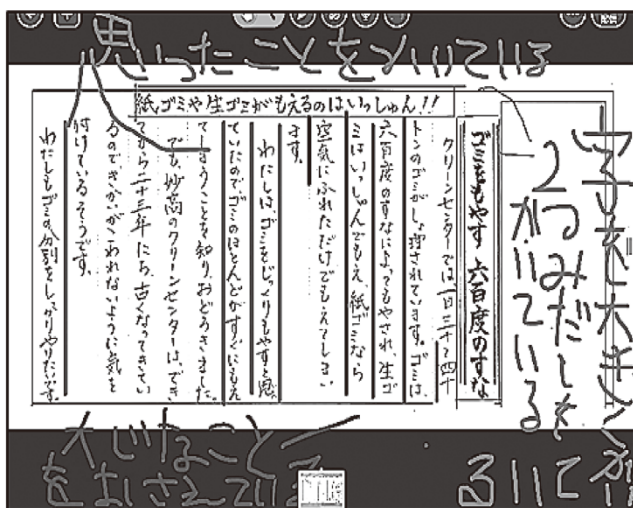 思ったことをかいている
紙ゴミや生ゴミがもえるのはいっしゅん!!
字を大きくかいている
2つみだしをかいている
ゴミをもやす 六百度のすな
クリーンセンターでは一日三十〜四十
トンのゴミがしょ理されています。ゴミは、
六百度のすなによってもやされ、生ゴ
ミはいっしゅんでもえ、紙ゴミなら
空気にふれただけでもえてしまい
ます。
わたしは、ゴミをじっくりもやすと思っ
ていたので、ゴミのほとんどがすぐにもえ
てしまうことを知り、おどろきました。
でも、妙高のクリーンセンターは、でき
てから二十三年にたち、古くなってきてい
るのできかいがこわれないように気を
付けているそうです。
わたしもゴミの分別をしっかりやりたいです。
大じなこと
をおさえている